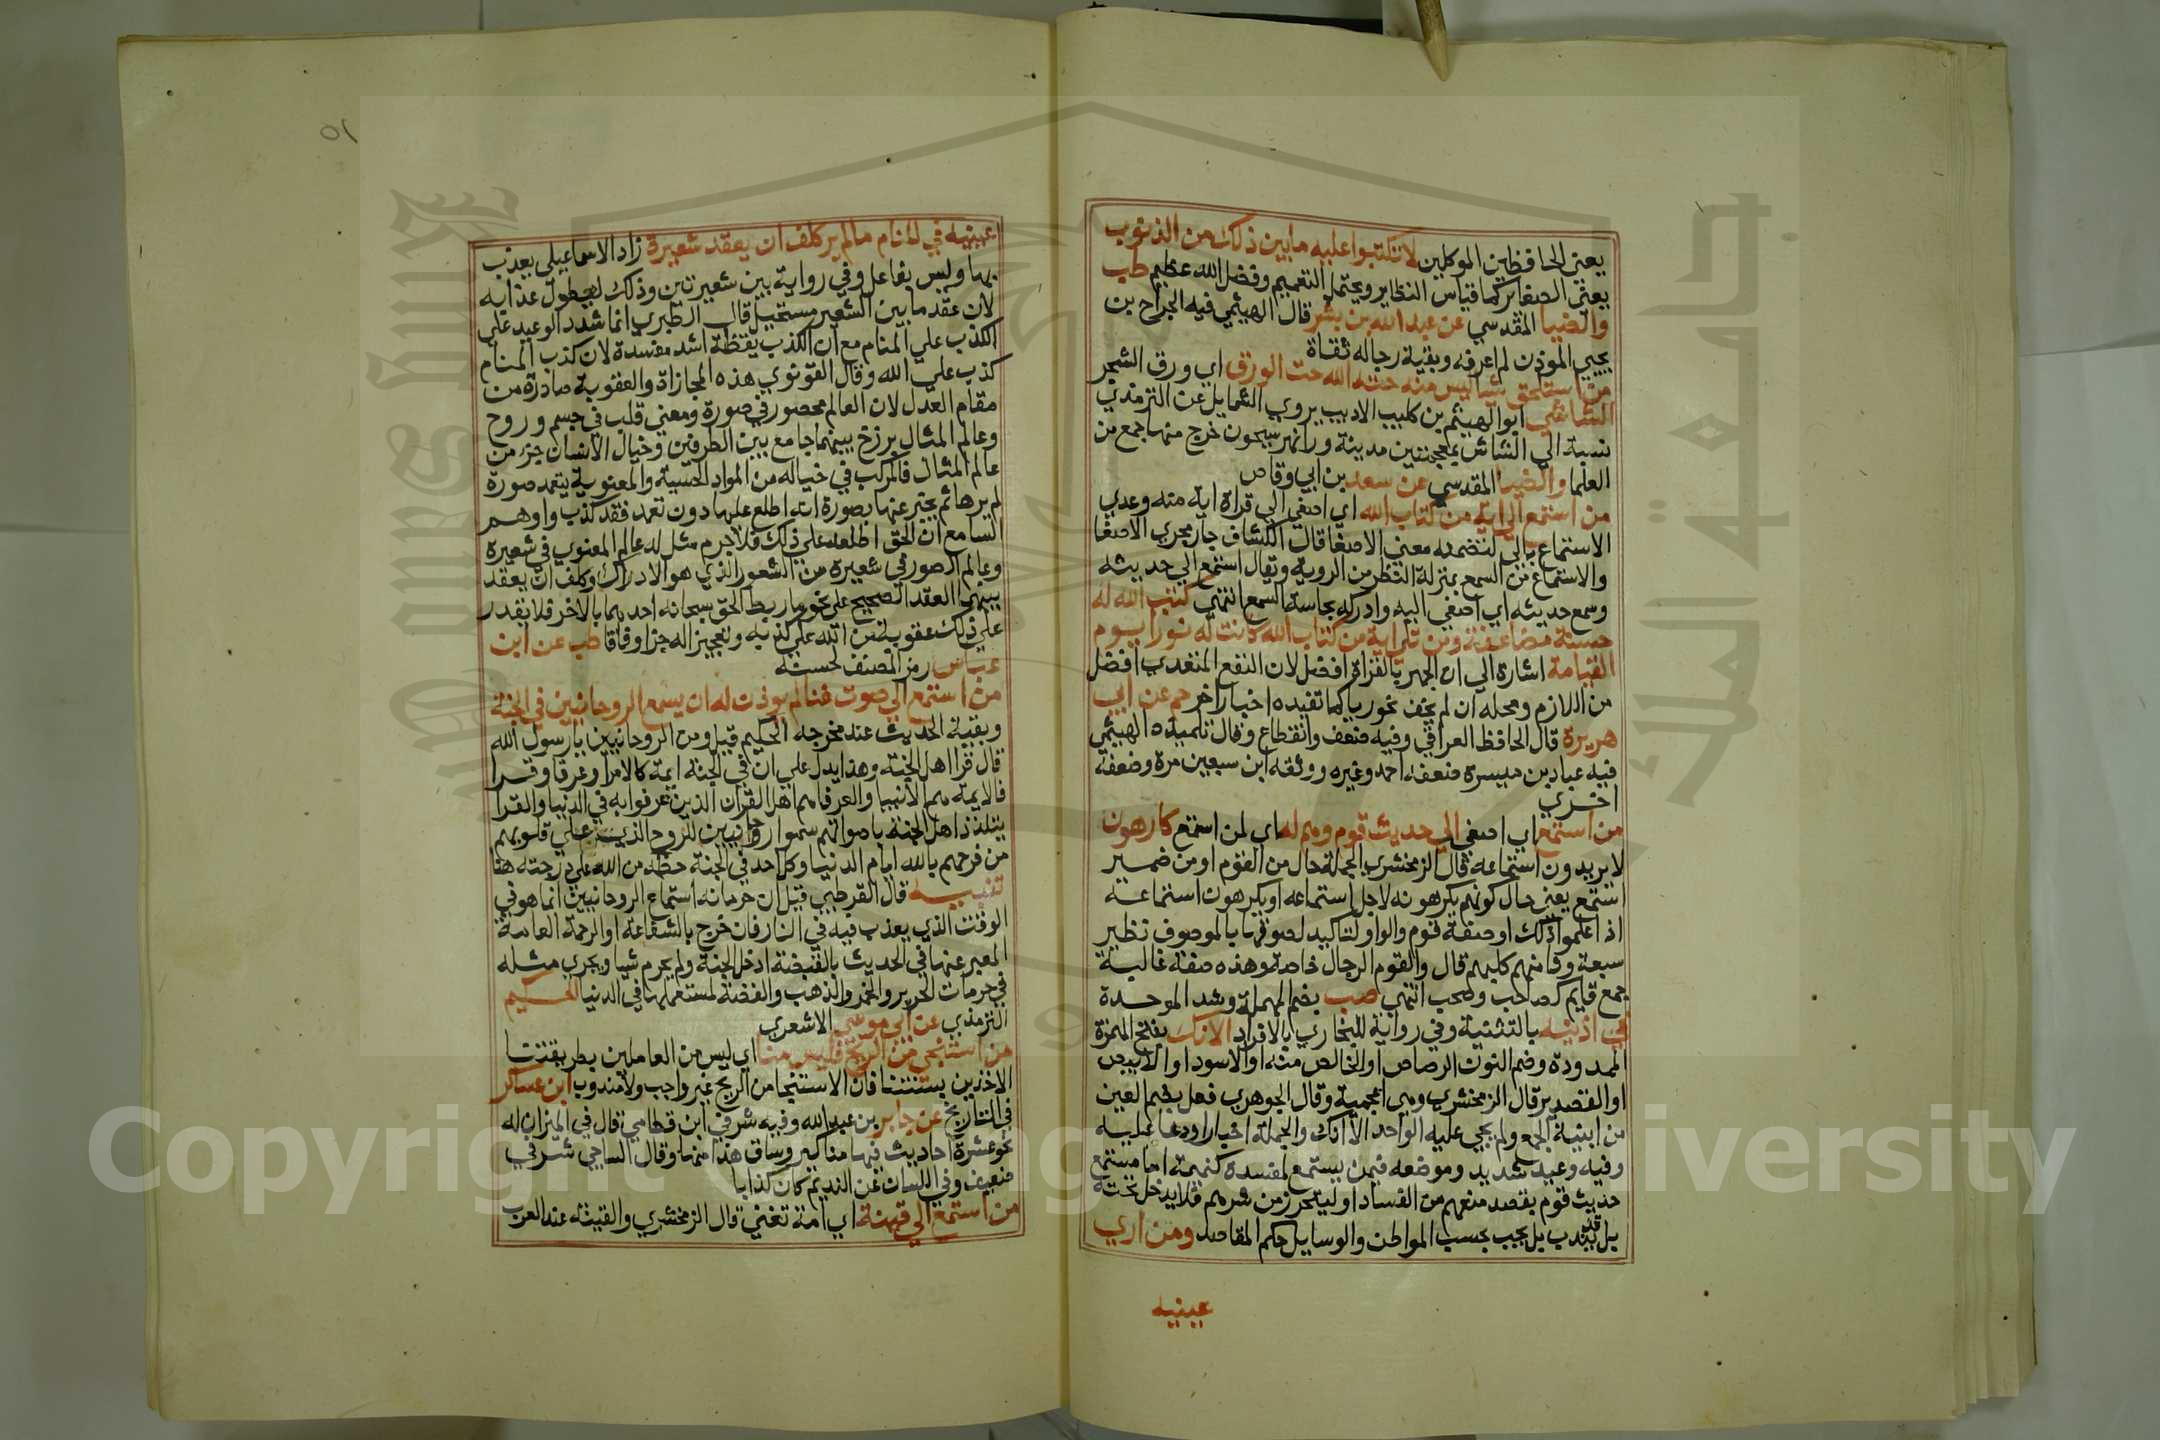 يعني الحافظين الموكلين لا تكتبوا عليه ما بين ذلك من الذنوب
يعني الصغاير كما قياس النظاير ويحتمل التعميم وفضل الله عظيم طب
والضيا المقدسي عن عبد الله بن بشر قال الهيثمي فيه الجراح بن
يحيي الموذن لم اعرفه وبقية رجاله ثقاة
من استلحق شيا ليس منه حته الله حت الورق اي ورق الشجر
الشاشي ابو الهيثم بن كليب الاديب يروي الشمايل عن الترمذي
نسبة الي الشاش بمعجمتين مدينة ورا نهر سيحون خرج منها جمع من
العلما والضيا المقدسي عن سعد بن ابي وقاص
من استمع الي اية من كتاب الله اي اصغي الي قراة اية منه وعدي
الاستماع بالي لتضمنه معني الاصغا قال الكشاف جار مجري الاصغا
والاستماع من السمع بمنزلة النظر من الروية ويقال استمع الي حديثه
وسمع حديثه اي اصغي اليه وادركه بحاسة السمع انتهي كتب الله له
حسنة مضاعفة ومن تلي اية من كتاب الله كانت له نورا يوم
القيامة اشارة الي ان الجهر بالقراة افضل لان النفع المتعدي افضل
من اللازم ومحله ان لم يخف نحو ريا كما تفيده اخبار اخر حم عن ابي
هريرة قال الحافظ العراقي وفيه ضعف وانقطاع وقال تلميذه الهيثمي
فيه عباد بن ميسرة ضعفه احمد وغيره ووثقه ابن سبعين مرة وضعفه
اخري
من استمع اي اصغي الي حديث قوم وهم له اي لمن استمع كارهون
لا يريدون استماعه قال الزمخشري الجملة حال من القوم او من ضمير
استمع يعني حال كونهم يكرهونه لاجل استماعه او يكرهون استماعه
اذا علموا ذلك او صفة قوم والواو لتاكيد لصوقها بالموصوف نظير
سبعة وثامنهم كلبهم قال والقوم الرجال خاصة وهذه صفة غالبة
جمع قايم كصاحب وصحب انتهي صب بضم المهملة وشد الموحدة
في اذنيه بالتثنية وفي رواية للبخاري بالافراد الانك بفتح الهمزة
الممدودة وضم النون الرصاص او الخالص منه او الاسود او الابيض
او القصدير قال الزمخشري وهي اعجمية وقال الجوهري فعل بضم العين
من ابنية الجمع ولم يجي عليه الواحد الا انك والجملة اخبار او دعا عليه
وفيه وعيد شديد وموضعه فيمن يستمع لمفسدة كنميمة اما مستمع
حديث قوم بقصد منعهم من الفساد او ليتحرز من شرهم فلا يدخل تحته
بل قد يندب بل يجب بحسب المواطن والوسايل حكم المقاصد ومن اري
عينيه
٥١
عينيه في المنام ما لم ير كلف ان يعقد شعيرة زاد الاسماعيلي يعذب
بها وليس بفاعل وفي رواية بين شعيرتين وذلك ليطول عذابه
لان عقد ما بين الشعير مستحيل قال الطبري انما شدد الوعيد علي
الكذب علي المنام مع ان الكذب يقظة اشد مفسدة لان كذب المنام
كذب علي الله وقال القونوي هذه المجازاة والعقوبة صادرة من
مقام العدل لان العالم محصور في صورة ومعني قلب في جسم وروح
وعالم المثال برزخ بينهما جامع بين الطرفين وخيال الانسان جزء من
عالم المثال فالمركب في خياله من المواد الحسية والمعنوية يتعمد صورة
لم يرها ثم يخبر عنها بصورة انه اطلع عليها دون تعمد فقد كذب واوهم
السامع ان الحق اطلعه علي ذلك فلا جرم مثل له عالم المعنوي في شعيرة
وعالم الصور في شعيرة من الشعور الذي هو الادراك وكلف ان يعقد
بينهما العقد الصحيح علي نحو ما ربط الحق سبحانه احدهما بالاخر فلا يقدر
علي ذلك عقوبة من الله علي كذبه وتعجيز اله جزا وفاقا طب عن ابن
عباس رمز المصنف لحسنه
من استمع الي صوت غنا لم يوذن له ان يسمع الروحانيين في الجنة
وبقية الحديث عند مخرجه الحكيم قيل ومن الروحانيين يا رسول الله
قال قرا اهل الجنة وهذا يدل علي ان في الجنة ايمة كالامرا وعرفا وقرا
فالايمة هم الانبيا والعرفا هم اهل القران الذين عرفوا به في الدنيا والقرا
يتلذذ اهل الجنة باصواتهم سموا روحانيين للروح الذي علي قلوبهم
من فرحهم بالله ايام الدنيا وكل احد في الجنة حظه من الله علي درجته هنا
تنبيه قال القرطبي قيل ان حرمانه استماع الروحانيين انما هو في
الوقت الذي يعذب فيه في النار فان خرج بالشفاعة او الرحمة العامة
المعبر عنها في الحديث بالقبضة ادخل الجنة ولم يحرم شيا ويجري مثله
في حرمات الحرير والخمر والذهب والفضة لمستعملها في الدنيا الحكيم
الترمذي عن ابي موسي الاشعري
من استنجي من الريح فليس منا اي ليس من العاملين بطريقتنا
الاخذين بسنتنا فان الاستنجا من الريح غير واجب ولا مندوب ابن عساكر
في التاريخ عن جابر بن عبد الله وفيه شرقي ابن قطامي قال في الميزان له
نحو عشرة احاديث فيها مناكير وساق هذا منها وقال الساجي شرقي
ضعيف وفي اللسان عن النديم كان كذابا
من استمع الي قينة اي امة تغني قال الزمخشري والقينة عند العرب